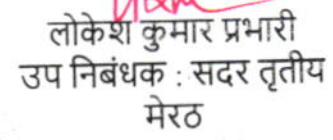 लोकेश कुमार प्रभारी
उप निबंधक : सदर तृतीय
मेरठ